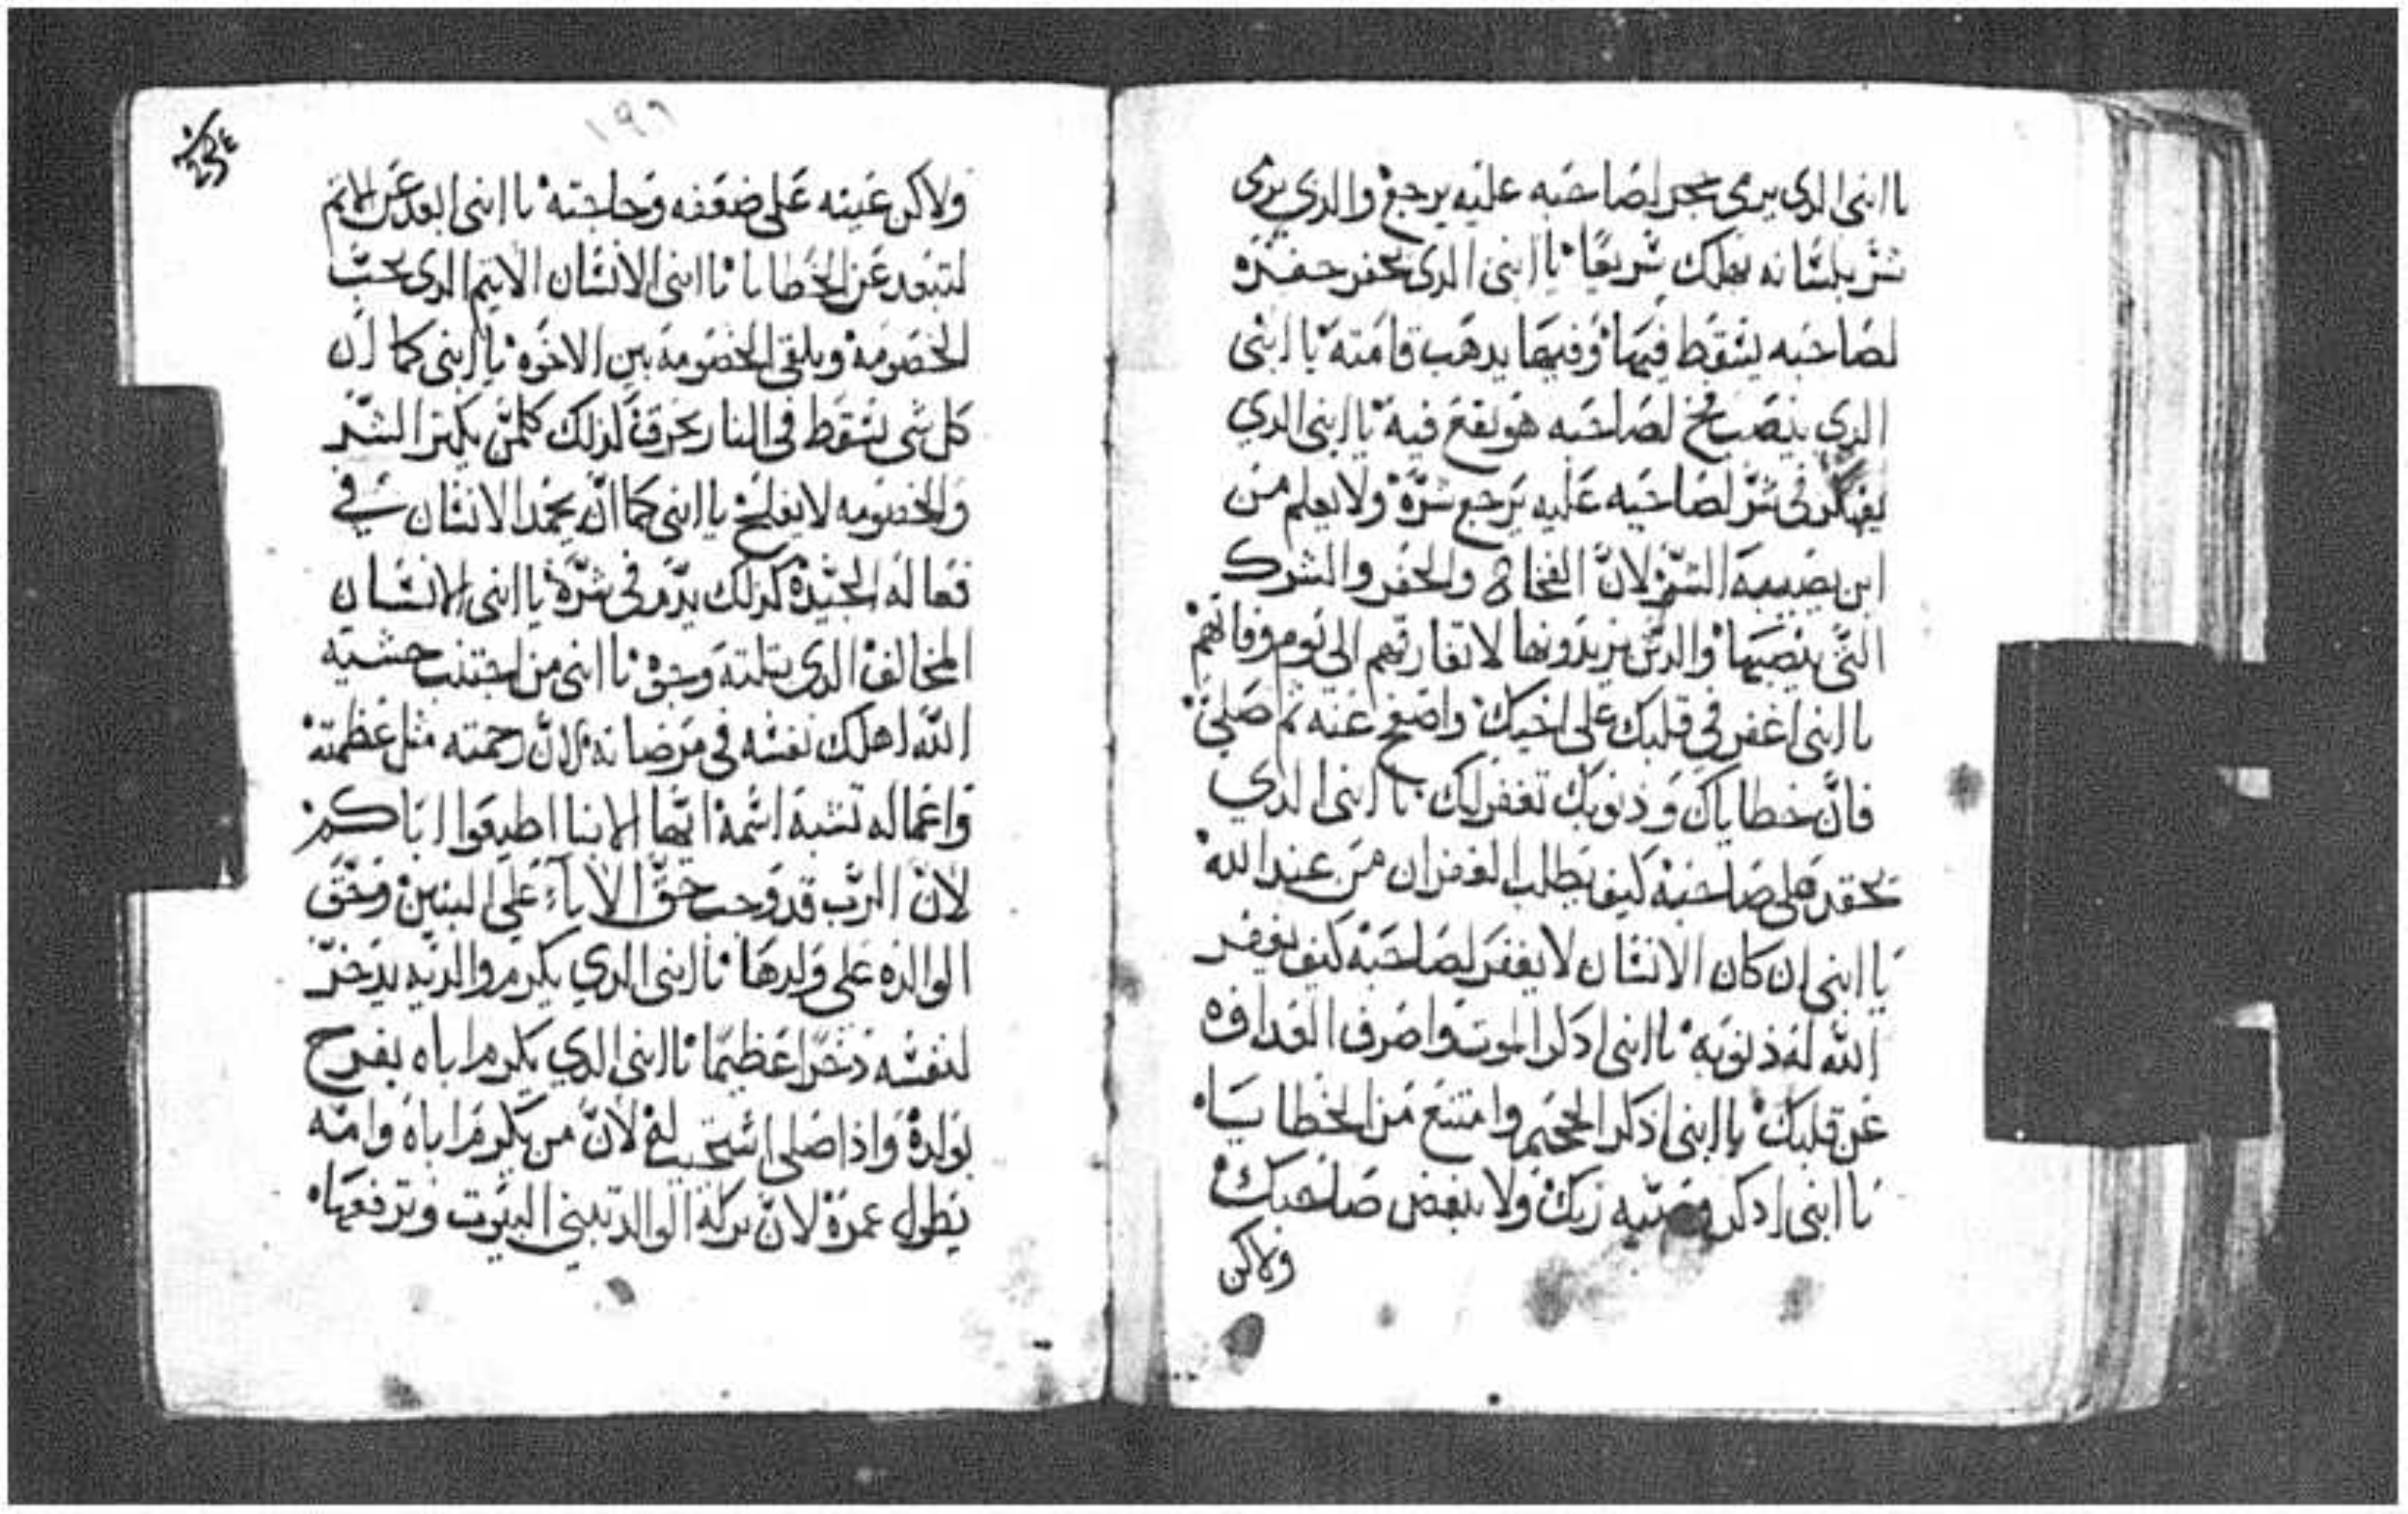 يا ابني الدي يرمي بحجر لصاحبه عليه يرجع والدي يرمي
شر بلسانه يهلك سريعًا يا ابني الدي يحفر حفرة
لصاحبه يسقط فيها وفيها يدهب قامته يا ابني
الدي ينصب فخ لصاحبه هو يقع فيه يا ابني الدي
يفكر في شر لصاحبه عليه يرجع شره ولا يعلم من
اين يصيبه الشر لان الفخاخ والحفر والشرك
التي ينصبها والدين يريدونها لا تفارقهم الى يوم وفاتهم
يا ابني اغفر في قلبك على اخيك واصفح عنه ثم صلي
فانّ خطاياك وذنوبك تغفر لك يا ابني الدي
يحقد على صاحبه كيف يطلب الغفران من عند الله
يا ابني ان كان الانسان لا يغفر لصاحبه كيف يغفر
الله له ذنوبه يا ابني ادكر الموت واصرف العداوه
عن قلبك يا ابني اذكر الجحيم وامتنع من الخطايا
يا ابني ادكر وصيه ربك ولا تبغض صاحبك
ولاكن
١٩٦
ولاكن عينه على ضعفه وحاجته يا ابني ابعد عن الاثم
لتبعد عن الخطايا يا ابني الانسان الاثيم الدي يحب
الخصومه ويلقي الخصومة بين الاخوه يا ابني كما ان
كل شي يسقط في النار يحرق لذلك كلمن يكتر الشر
والخصومه لا يفلح يا ابني كما انّه يحمد الانسان في
فعاله الجيدة كذلك يدم في شرّه يا ابني الانسان
المخالف الدي يتلته وجوه يا ابني من اجتنب خشية
الله اهلك نفسه في مرضاته لانّ رحمته مثل عظمته
واعماله تشبه اسمه ايّها الابنا اطيعوا اباكم
لانّ الربّ قد وجب حقّ الاباء على البنين وحق
الوالده على ولدها يا ابني الدي يكرم والديه يدخر
لنفسه دخرًا عظيمًا يا ابني الدي يكرم اباه يفرح
بولده واذا صلى استجيب له لانّ من يكرم اباه وامّه
يطول عمره لانّ بركة الوالد تبني البيوت وترفعها